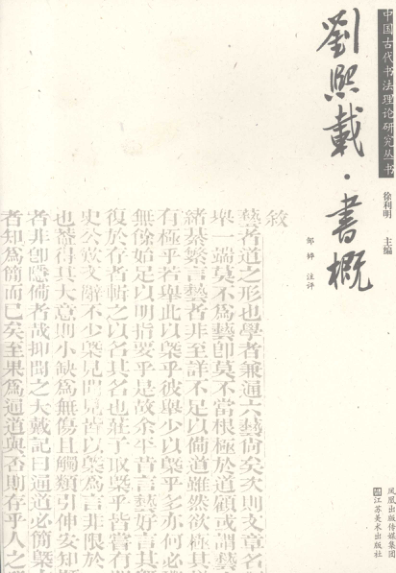 中国古代书法理论研究丛书
徐利明 主编
劉熙載·書概
邹锌 注评
叙
藝者道之形也學者兼通六藝尚矣次則文章名
舉一端莫不爲藝卽莫不當根極於道顧或謂藝
緒綦繁言藝者非至詳不足以備道雖然欲極其
有極乎若舉此以槩乎彼舉少以槩乎多亦何必
無餘始足以明指要乎是故余平昔言藝好言其
復於存者輯之以名其名也莊子取槩乎皆嘗有聞
史公歎文辭不少槩見聞見皆以槩爲言非限於
也蓋得其大意則小缺爲無傷且觸類引伸安知
者非卽隱備者哉抑聞之大戴記曰通道必簡槩
者知爲簡而已矣至果爲通道與否則存乎人之
凤凰出版传媒集团
江苏美术出版社